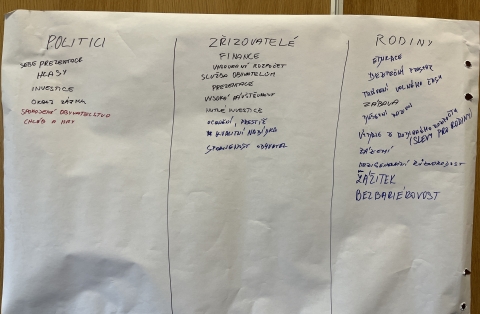 POLITICI
SEBE PREZENTACE
HLASY
INVESTICE
SPOKOJENÉ OBYVATELSTVO
CHLÉB A HRY
ZŘIZOVATELÉ
FINANCE
VYROVNANÝ ROZPOČET
SLUŽBA OBYVATELŮM
PREZENTACE
VYSOKÁ NÁVŠTĚVNOST
INVESTICE
OCENĚNÍ, PRESTIŽ
KVALITNÍ NABÍDKA
SPOKOJENOST OBYVATEL
RODINY
EDUKACE
BEZPEČNÝ PROSTOR
TRÁVENÍ VOLNÉHO ČASU
ZÁBAVA
Z RODINNÉHO ROZPOČTU
(SLEVY PRO RODINY)
ZÁZEMÍ
RŮZNORODOST
ZÁŽITEK
BEZBARIÉROVOST